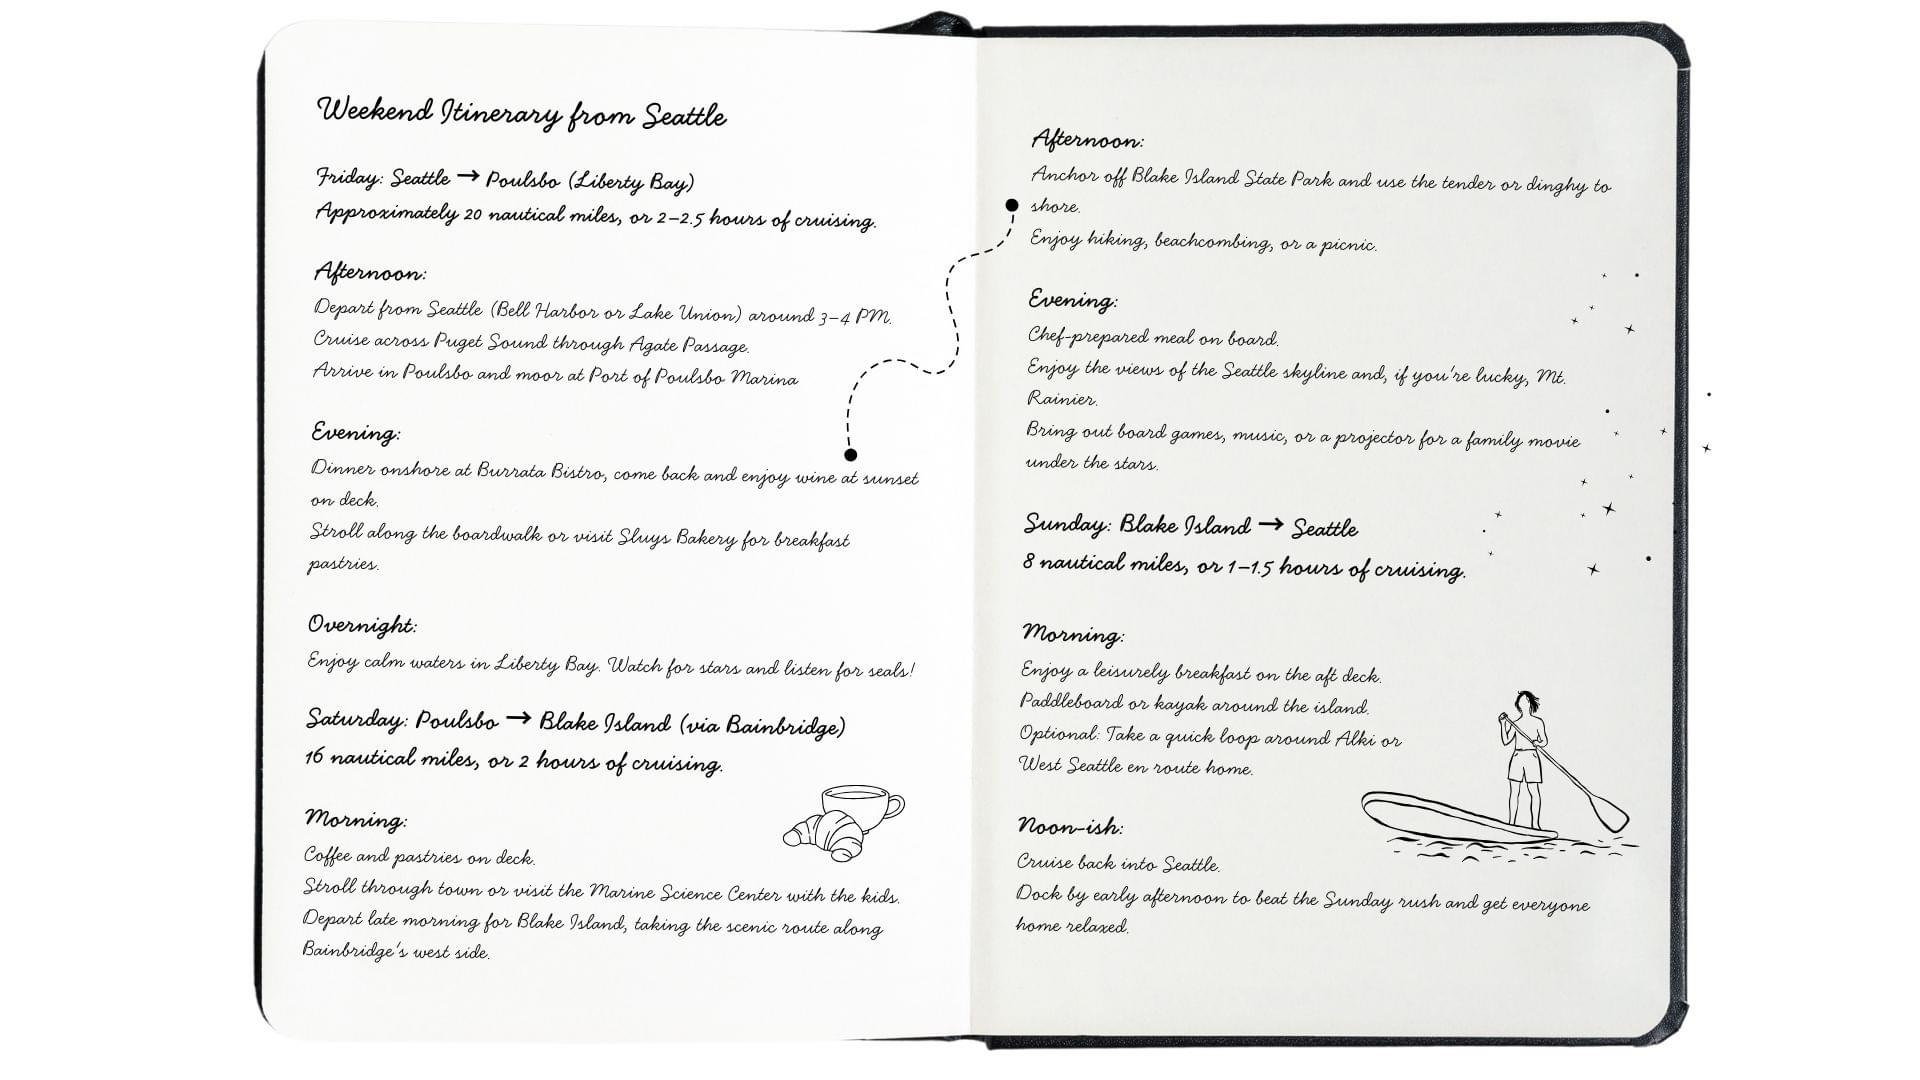 Weekend Itinerary from Seattle
Friday: Seattle → Poulsbo (Liberty Bay)
Approximately 20 nautical miles, or 2–2.5 hours of cruising.
Afternoon:
Depart from Seattle (Bell Harbor or Lake Union) around 3–4 PM.
Cruise across Puget Sound through Agate Passage.
Arrive in Poulsbo and moor at Port of Poulsbo Marina
Evening:
Dinner onshore at Burrata Bistro, come back and enjoy wine at sunset
on deck.
Stroll along the boardwalk or visit Sluys Bakery for breakfast
pastries.
Overnight:
Enjoy calm waters in Liberty Bay. Watch for stars and listen for seals!
Saturday: Poulsbo → Blake Island (via Bainbridge)
16 nautical miles, or 2 hours of cruising.
Morning:
Coffee and pastries on deck.
Stroll through town or visit the Marine Science Center with the kids.
Depart late morning for Blake Island, taking the scenic route along
Bainbridge's west side.
Afternoon:
Anchor off Blake Island State Park and use the tender or dinghy to
shore.
Enjoy hiking, beachcombing, or a picnic.
Evening:
Chef-prepared meal on board.
Enjoy the views of the Seattle skyline and, if you're lucky, Mt.
Rainier.
Bring out board games, music, or a projector for a family movie
under the stars.
Sunday: Blake Island → Seattle
8 nautical miles, or 1–1.5 hours of cruising.
Morning:
Enjoy a leisurely breakfast on the aft deck.
Paddleboard or kayak around the island.
Optional: Take a quick loop around Alki or
West Seattle en route home.
Noon-ish:
Cruise back into Seattle.
Dock by early afternoon to beat the Sunday rush and get everyone
home relaxed.